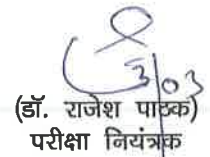 3/03
(डॉ. राजेश पाठक)
परीक्षा नियंत्रक